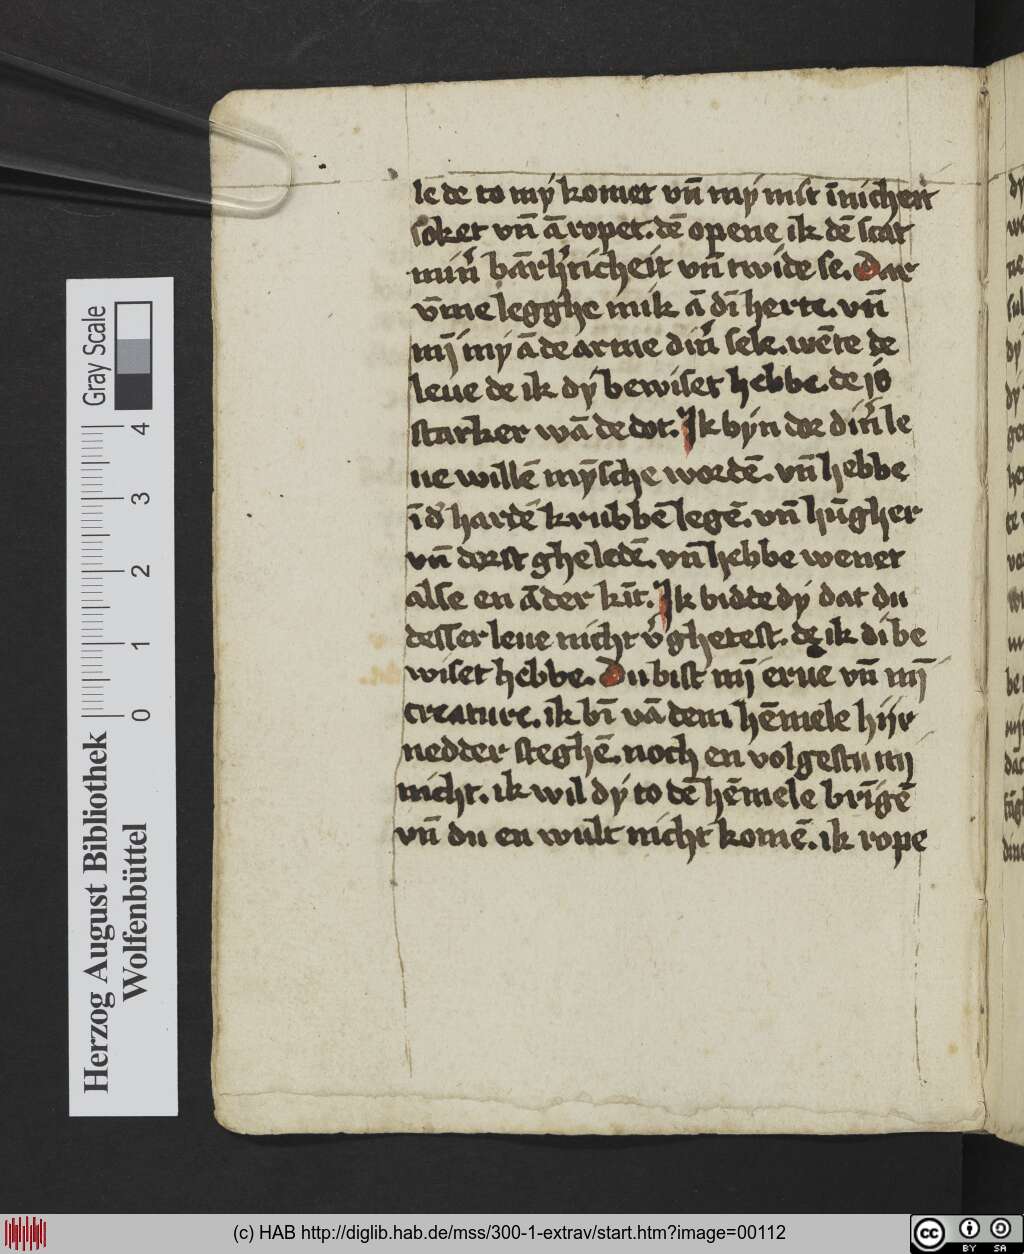 le de to mẏ komet vn̄ mẏ mit īnicheit
soket vn̄ ā ropet. dē opene ik dē scat
min̄ bārh̓ticheit vn̄ twide se. Dar
v̄me legghe mik ā dī herte. vn̄
mī mẏ ā de arme din̄ sele. wēte de
leue de ik dẏ bewiset hebbe. de is
starker wā de dot. Ik bẏn dor din̄ le
ue willē mȳsche wordē. vn̄ hebbe
ī d̓ hardē krubbē legē. vn̄ hūgher
vn̄ dorst gheledē. vn̄ hebbe wenet
alse en āder kīt. Ik bidde dẏ dat du
desser leue nicht v̓ghetest. de ik di be
wiset hebbe. Du bist mī erue vn̄ mī
creature. ik bī vā dem hēmele hijr
nedder steghē. noch en volgestu mi
nicht. ik wil dẏ to dē hēmele brīgē
vn̄ du en wult nicht komē. ik rope
Gray Scale
0 1 2 3 4
Herzog August Bibliothek
Wolfenbüttel
(c) HAB http://diglib.hab.de/mss/300-1-extrav/start.htm?image=00112
cc BY SA